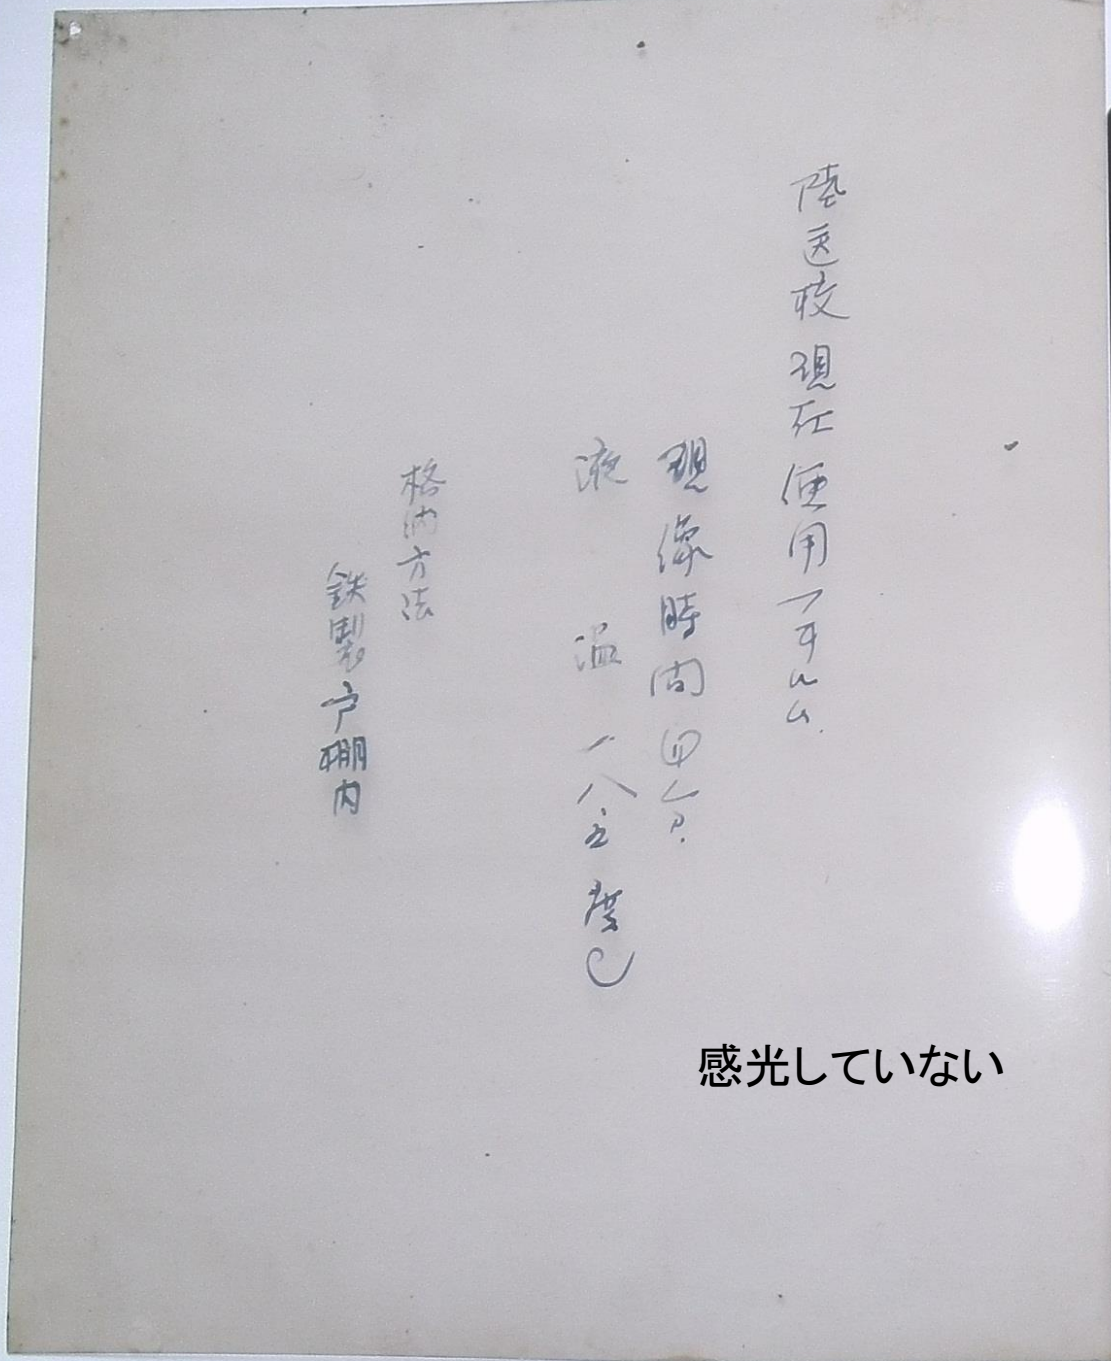 陸医校現在使用フヰルム
現像時間四分
液温一八五度C
格納方法
鉄製戸棚内
感光していない